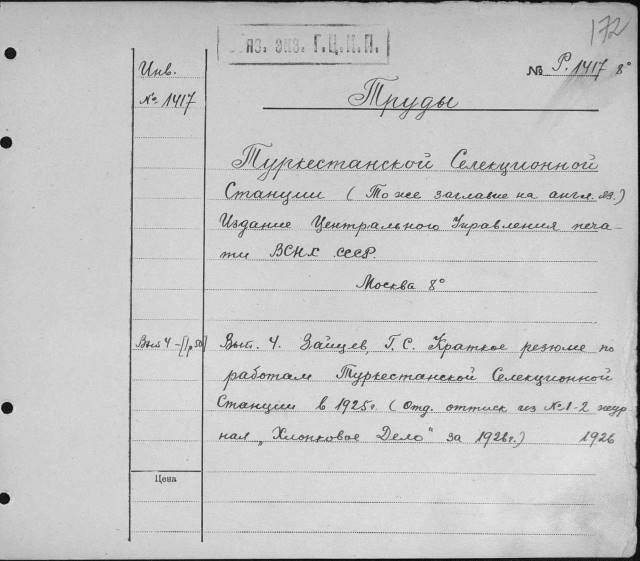 172
яз. экз. Г.Ц.К.П.
Инв.
№ 1417
№ Р.1417 8°
Труды
Туркестанской Селекционной
Станции (То же заглавие на англ. яз.)
Издание Центрального Управления печа-
ти ВСНХ СССР.
Москва 8°
Вып 4 - [1р.50]
Вып. 4. Зайцев, Г. С. Краткое резюме по
работам Туркестанской Селекционной
Станции в 1925г. (Отд. оттиск из №1-2 жур
нал „Хлопковое Дело" за 1926г.) 1926
Цена